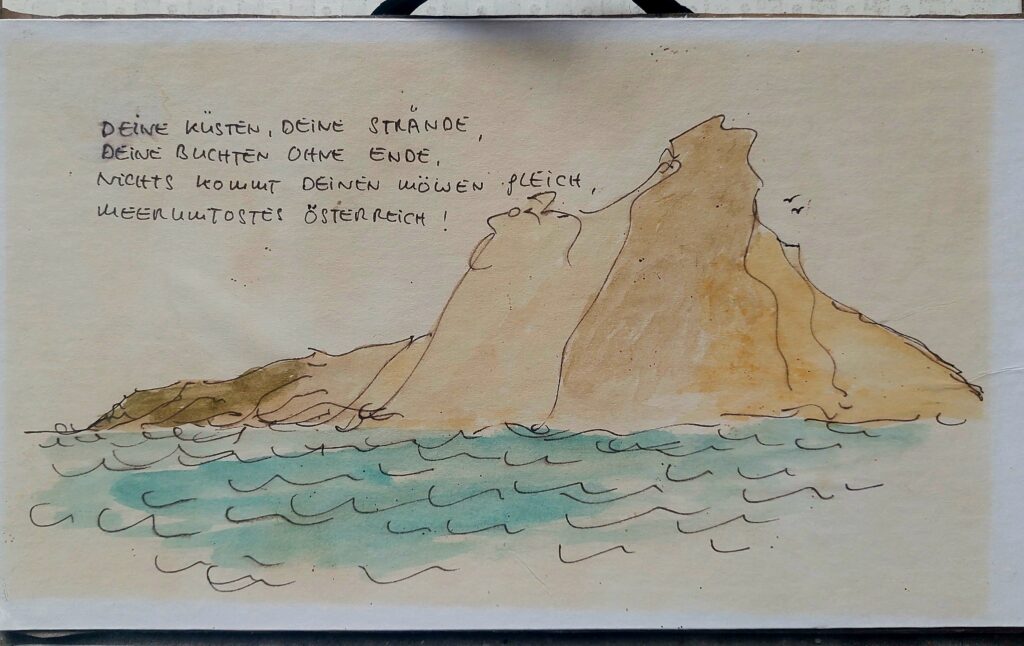 DEINE KÜSTEN, DEINE STRÄNDE,
DEINE BUCHTEN OHNE ENDE,
NICHTS KOMMT DEINEN MÖWEN GLEICH,
MEERUMTOSTES ÖSTERREICH!